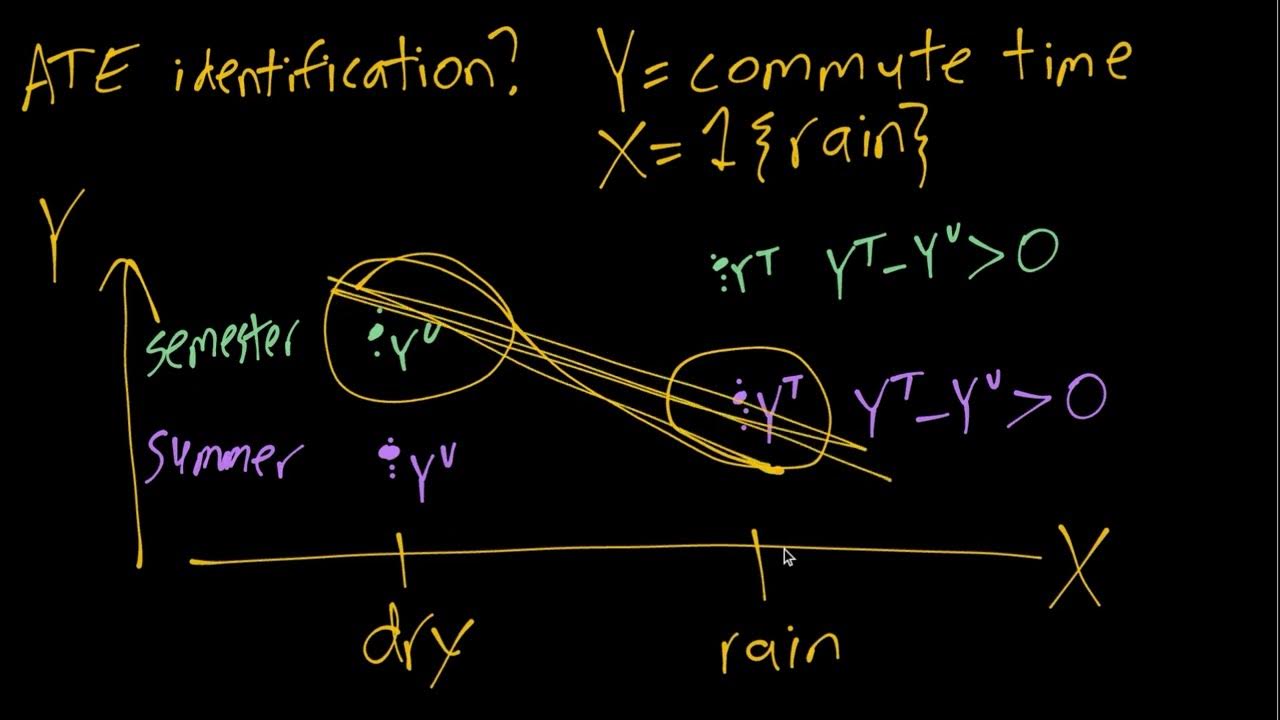 ATE identification? Y = commute time
X = 1{rain}
Y
Y^T Y^T - Y^U > 0
semester Y^U
Y^T Y^T - Y^U > 0
summer Y^U
X
dry rain